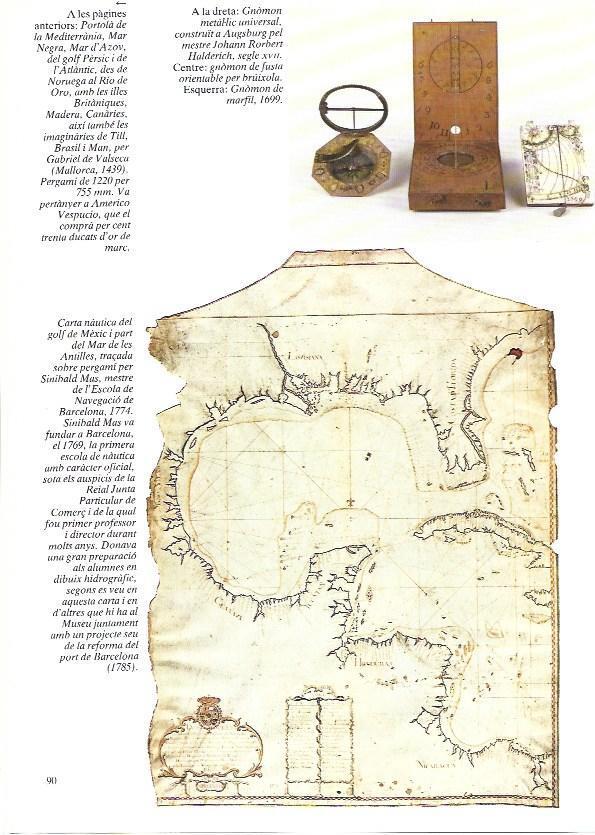 ←
A les pàgines
anteriors: Portolà de
la Mediterrània, Mar
Negra, Mar d'Azov,
del golf Pèrsic i de
l'Atlàntic, des de
Noruega al Río de
Oro, amb les illes
Britàniques,
Madera, Canàries,
així també les
imaginàries de Till,
Brasil i Man, per
Gabriel de Valseca
(Mallorca, 1439).
Pergamí de 1220 per
755 mm. Va
pertànyer a Americo
Vespucio, que el
comprà per cent
trenta ducats d'or de
marc.
A la dreta: Gnòmon
metàl·lic universal,
construït a Augsburg pel
mestre Johann Rorbert
Halderich, segle XVII.
Centre: gnòmon de fusta
orientable per brúixola.
Esquerra: Gnòmon de
marfil, 1699.
Carta nàutica del
golf de Mèxic i part
del Mar de les
Antilles, traçada
sobre pergamí per
Sinibald Mas, mestre
de l'Escola de
Navegació de
Barcelona, 1774.
Sinibald Mas va
fundar a Barcelona,
el 1769, la primera
escola de nàutica
amb caràcter oficial,
sota els auspicis de la
Reial Junta
Particular de
Comerç i de la qual
fou primer professor
i director durant
molts anys. Donava
una gran preparació
als alumnes en
dibuix hidrogràfic,
segons es veu en
aquesta carta i en
d'altres que hi ha al
Museu juntament
amb un projecte seu
de la reforma del
port de Barcelona
(1785).
HONDURAS
NICARAGUA
90